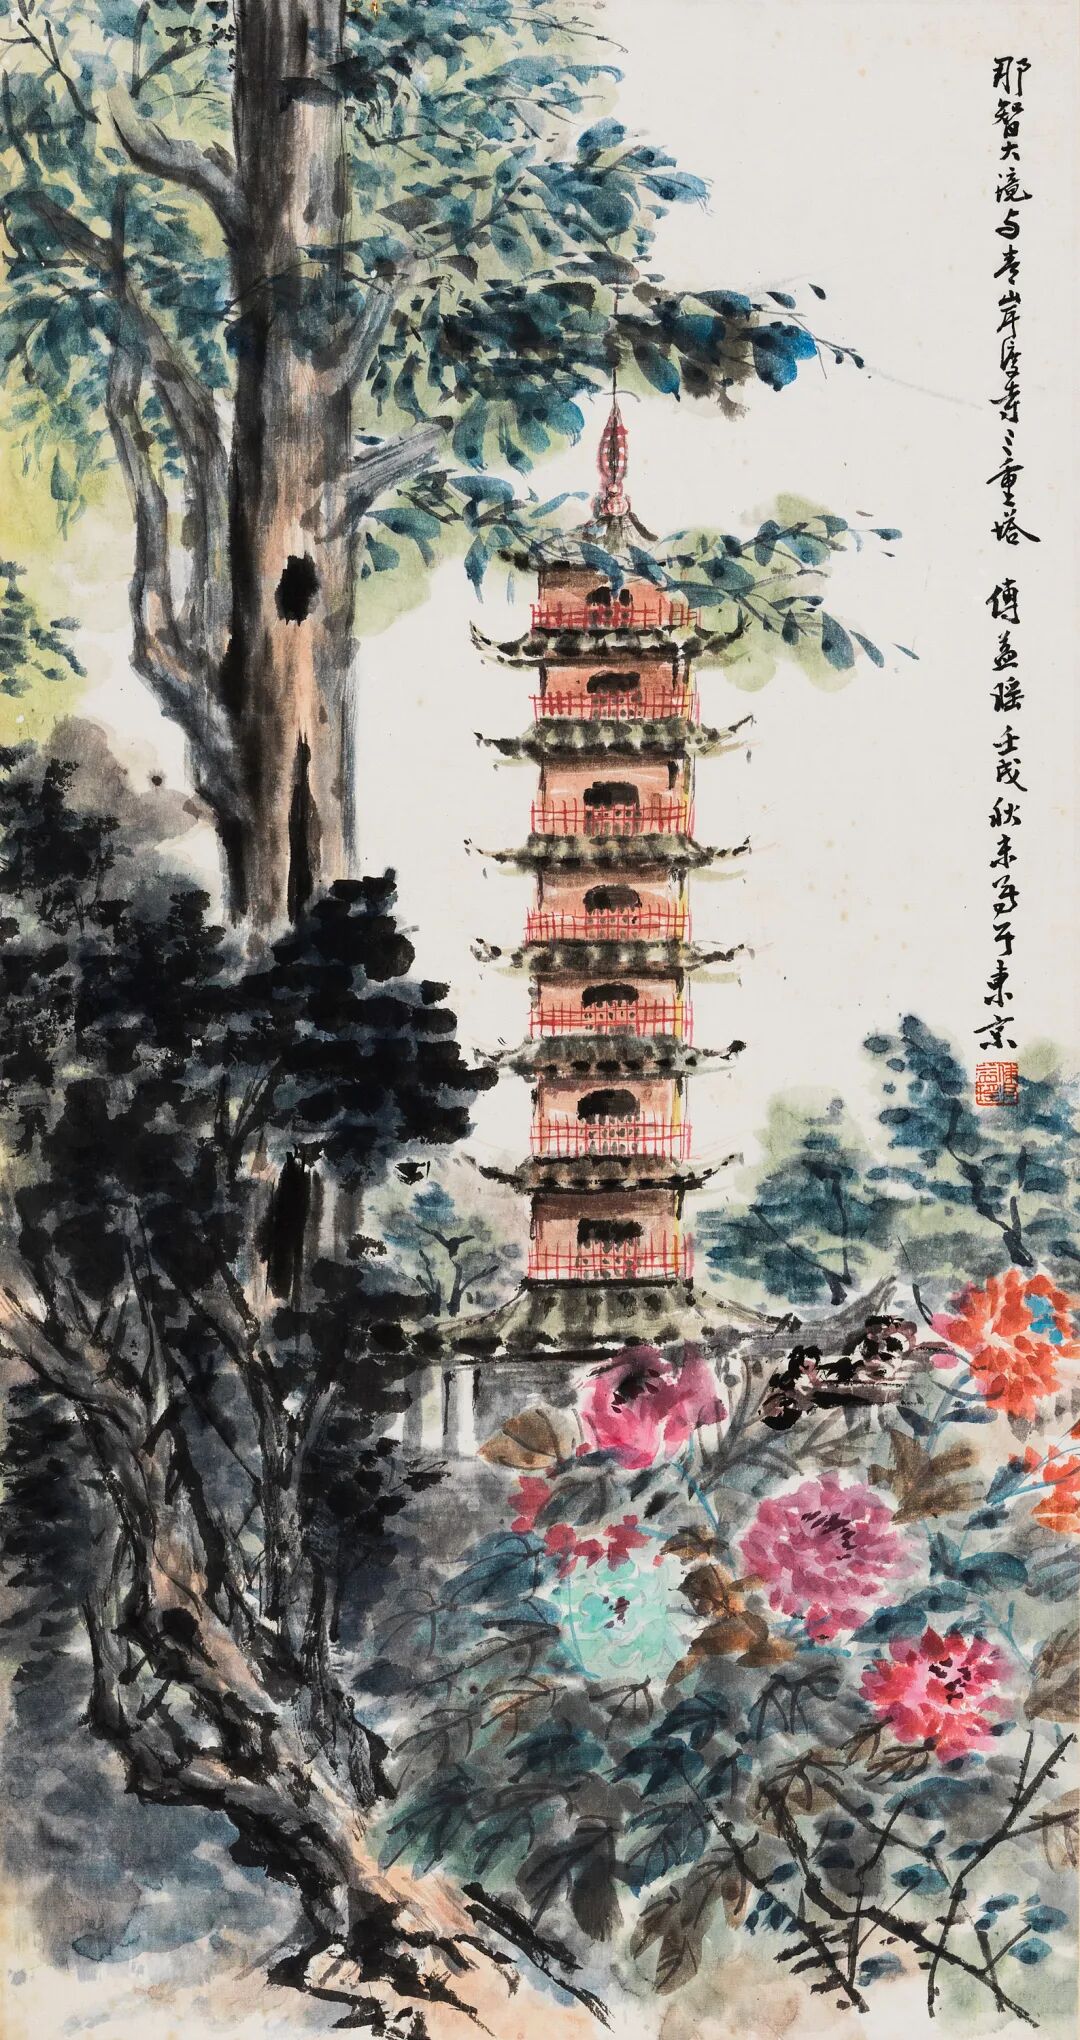 那智大滝与青岸渡寺三重塔 傅益瑶 壬戌秋末写于東京
傅益瑶